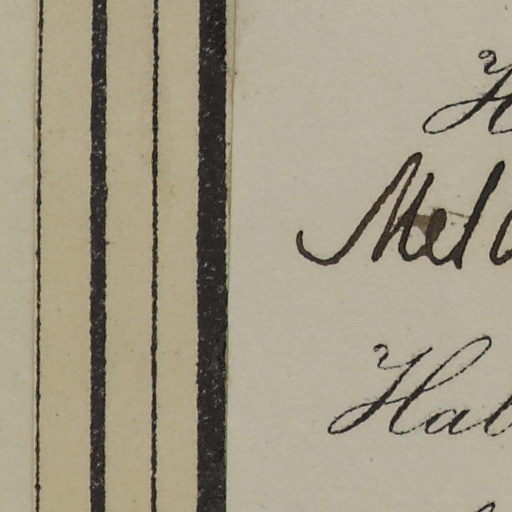 H
Mel
Hab